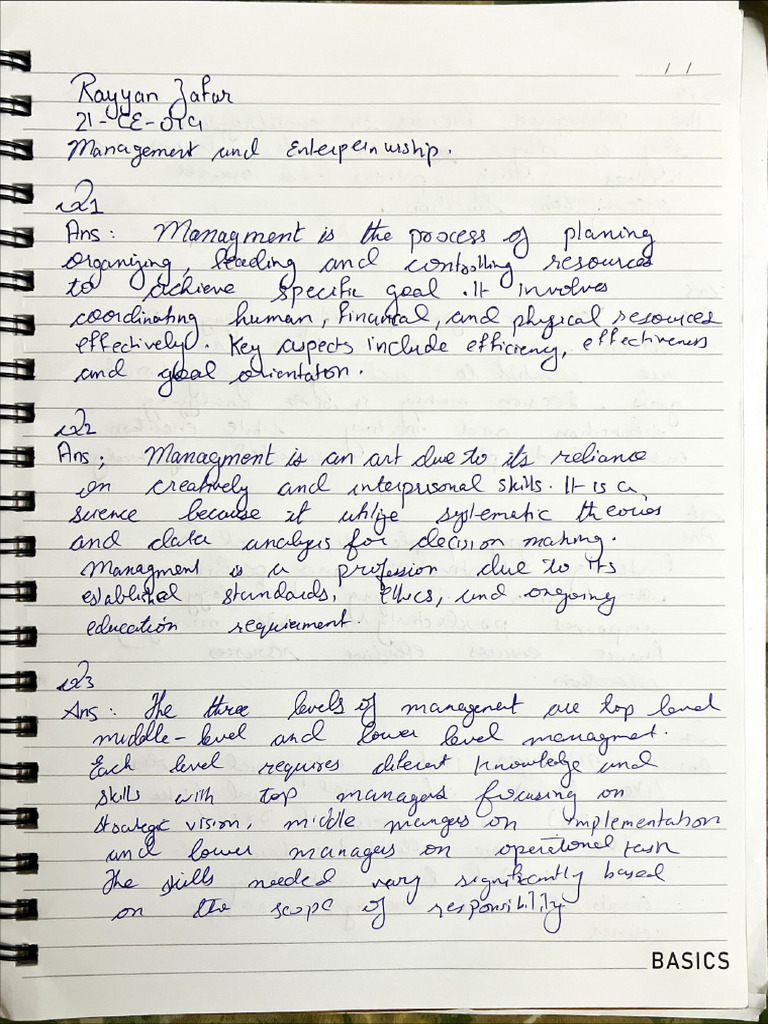 / /
Rayyan Zafar
21-CE-019
Management and Enterpernurship.
Q1
Ans: Managment is the process of planing
organizing, leading and controlling resources
to achieve specific goal. It involves
coordinating human, financal, and physical resources
effectively. Key aspects include efficiency, effectiveness
and goal orientaton.
Q2
Ans; Managment is an art due to its reliance
on creatively and interprsonal skills. It is a
science because it utilize systematic theories
and data analysis for decision making.
Managment is a profession due to its
established standards, ethics, and ongoing
education requirment.
Q3
Ans: The three levels of management are top level
middle-level and lower level managmet.
Each level requires diferent knowledge and
skills with top managers focusing on
strategic vision, middle mangers on implementation
and lower managers on operational task
The skills needed vary significantly based
on the scope of responsibility
BASICS